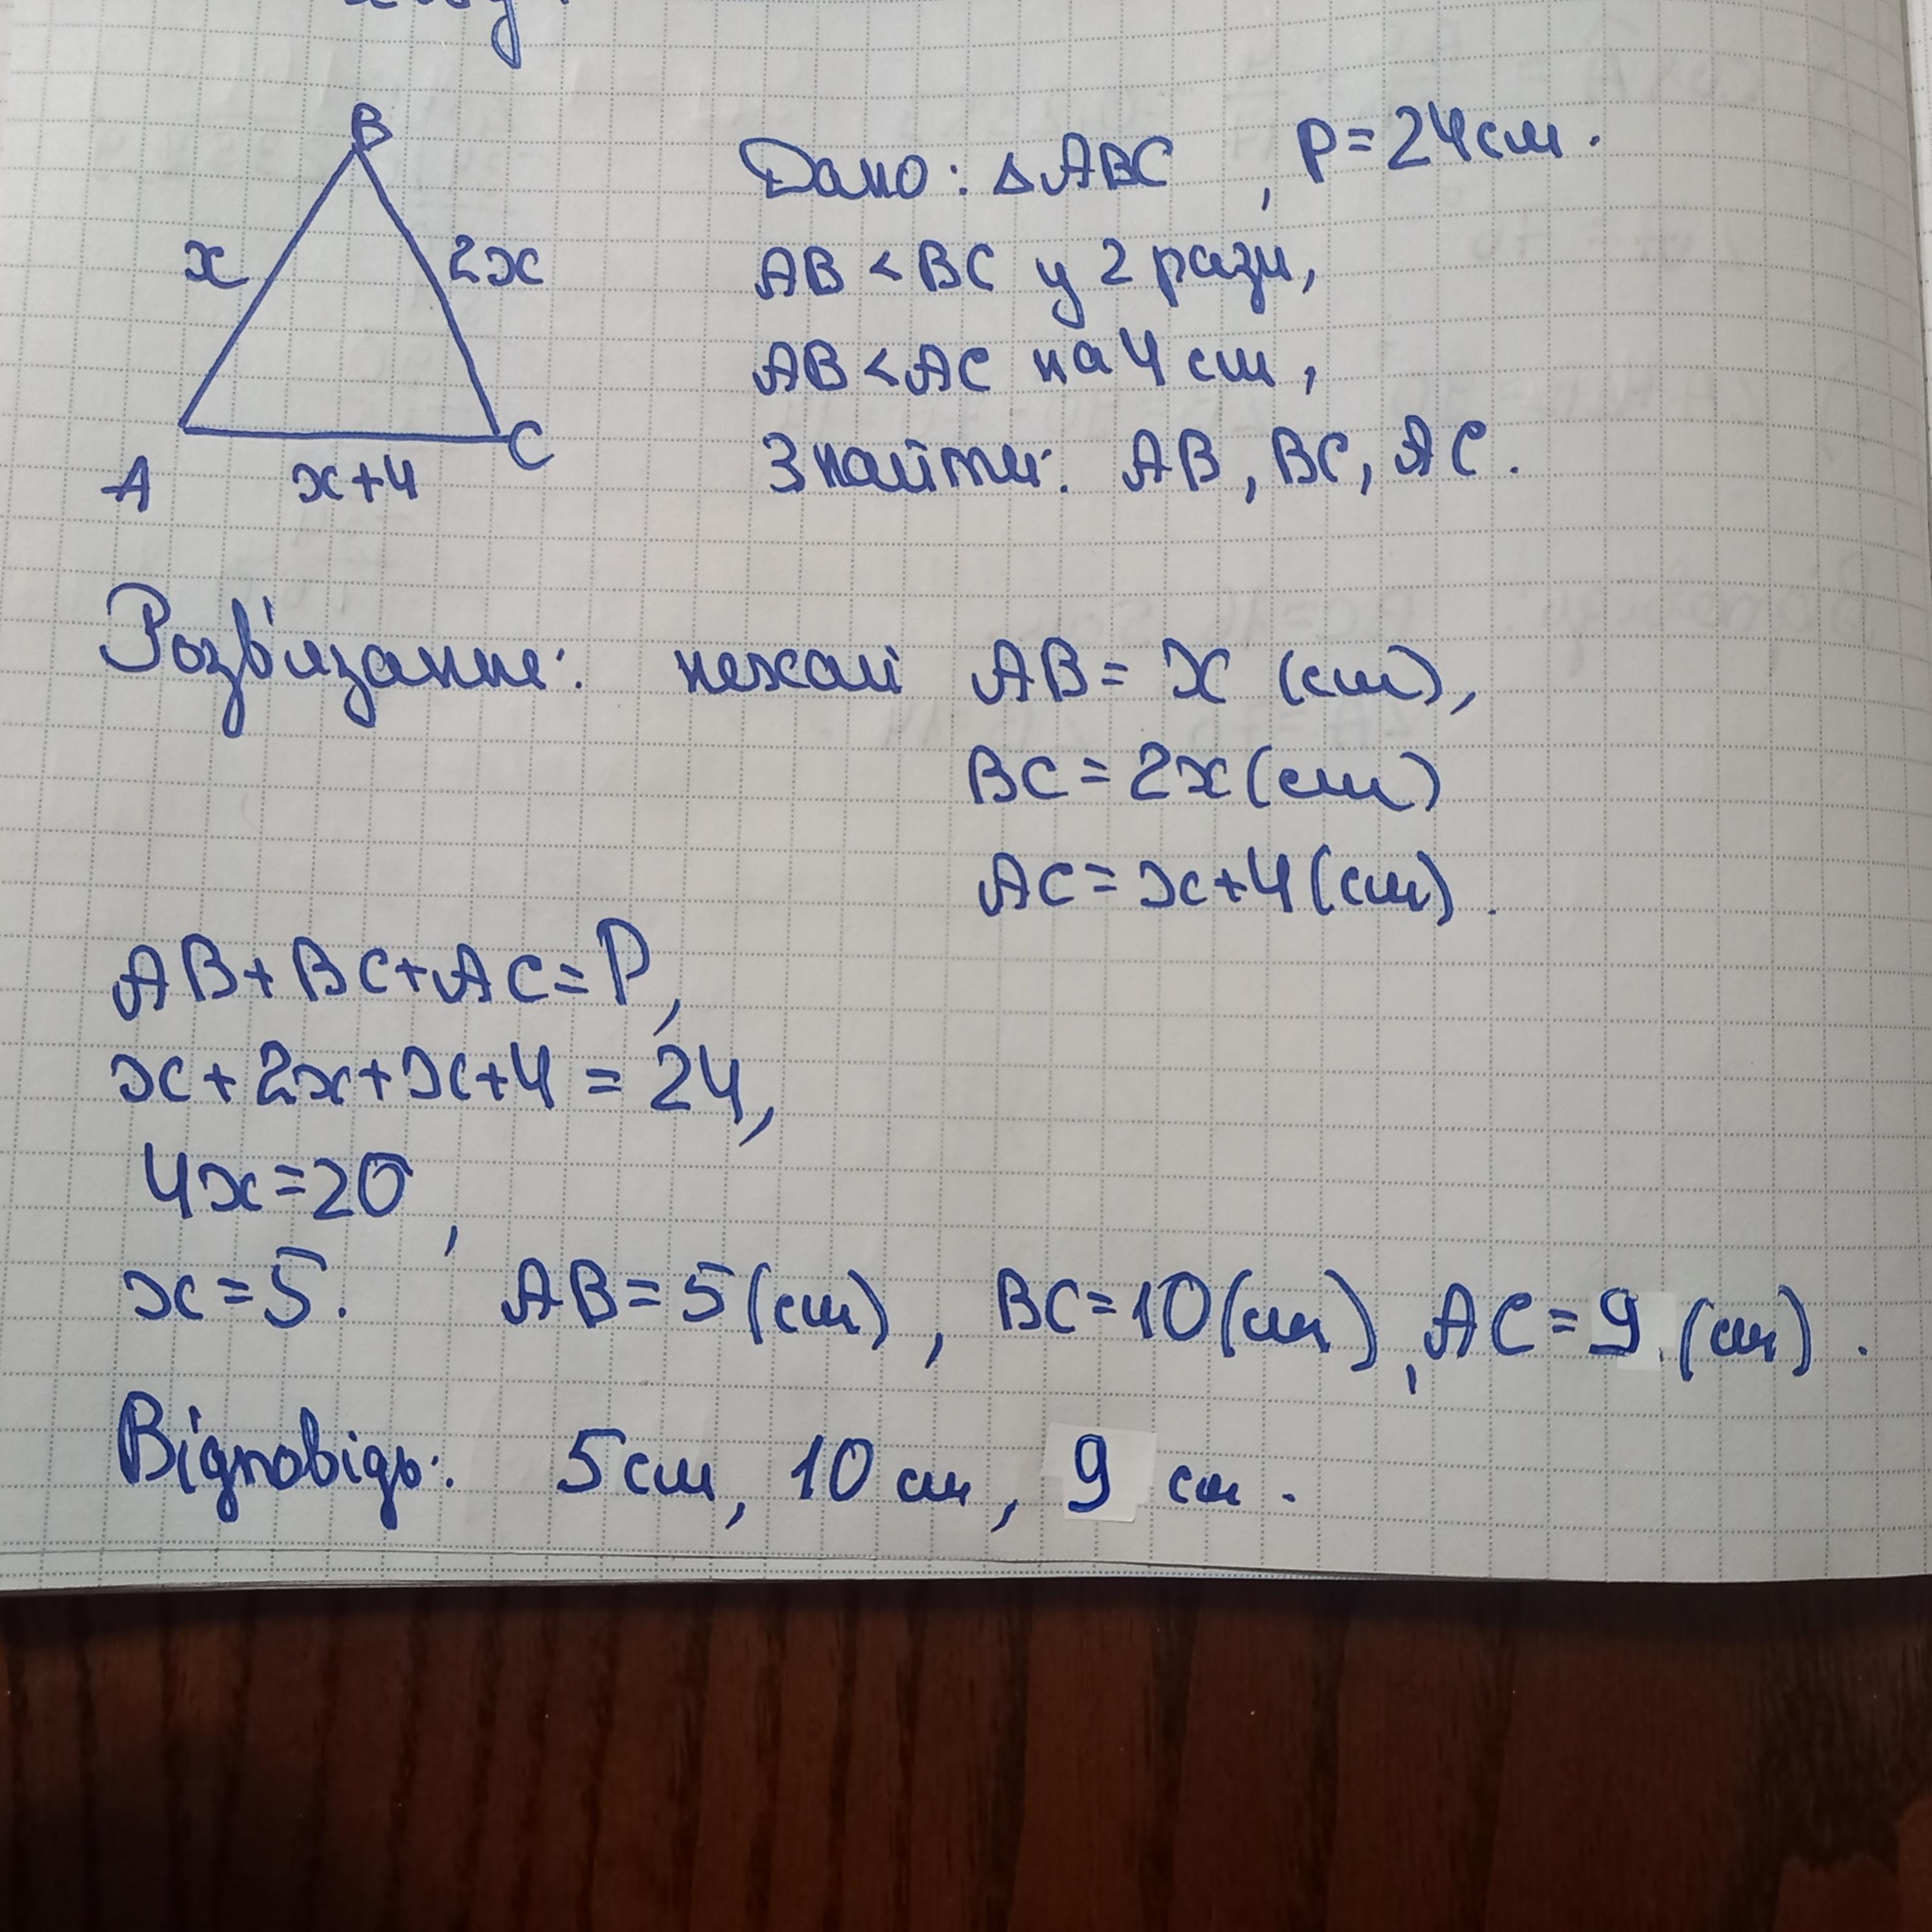 B
Дано: △ABC, P=24см.
x 2x
AB < BC у 2 рази,
AB < AC на 4 см,
A x+4 C
Знайти: AB, BC, AC.
Розв'язання: нехай AB = x (см),
BC = 2x (см)
AC = x+4 (см).
AB+BC+AC=P,
x+2x+x+4=24,
4x=20,
x=5. AB=5(см), BC=10(см), AC=9.(см).
Відповідь: 5см, 10 см, 9 см.